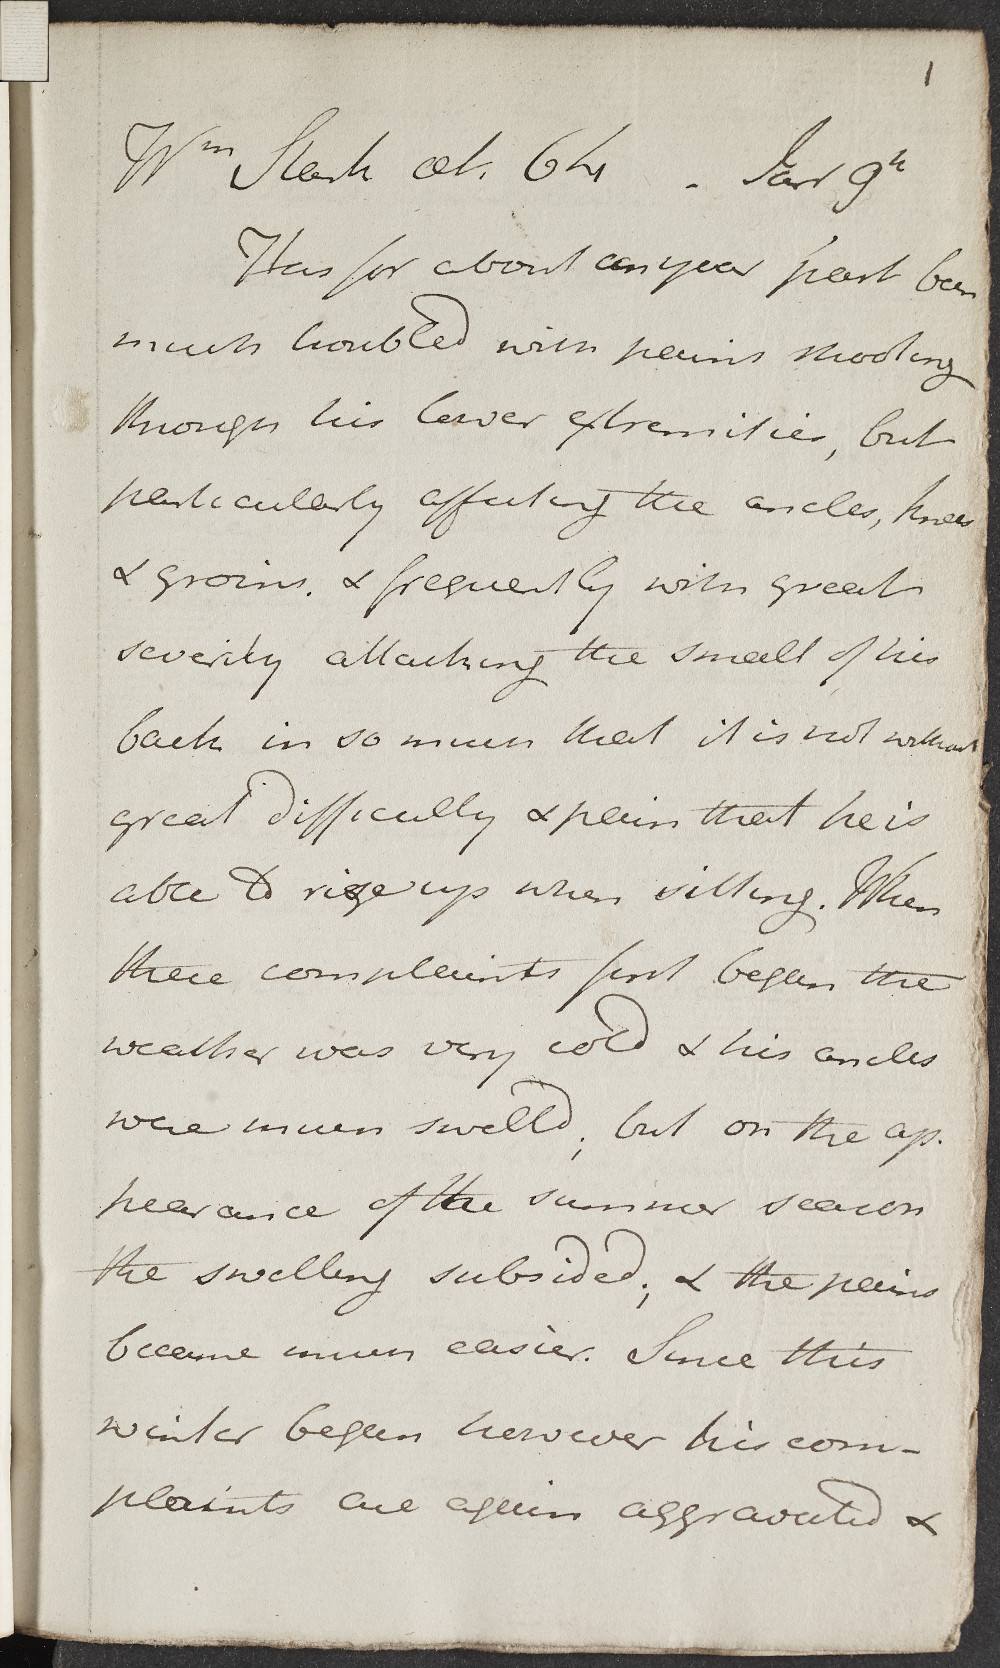 1
Wm Stark æt. 64 . Jan 9th
Has for about an year past been
much troubled with pains shooting
through his lower extremities, but
particularly affecting the ancles, knees
& groins. & frequently with great
severity attacking the small of his
back in so much that it is not without
great difficulty & pain that he is
able to rise up when sitting. When
these complaints first began the
weather was very cold & his ancles
were much swelld, but on the ap-
pearance of the summer season
the swelling subsided; & the pains
became much easier. Since this
winter began however his com-
plaints are again aggravated &